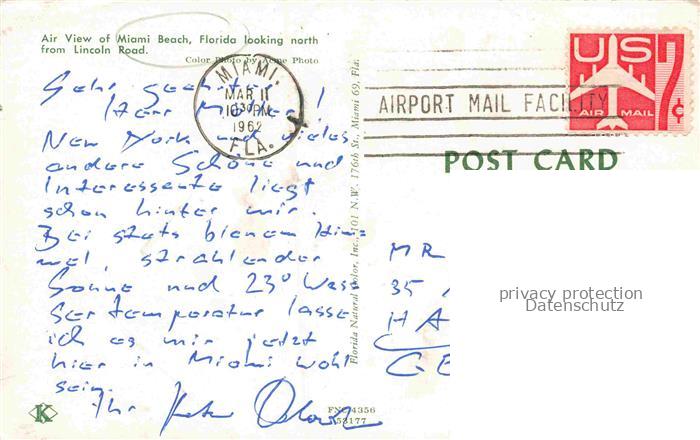 Air View of Miami Beach, Florida looking north
from Lincoln Road.
Color Photo by Acme Photo
MIAMI,
MAR 11
1030PM
1962
FLA.
AIRPORT MAIL FACILITY
US
AIR MAIL
7c
POST CARD
Sehr geehrter
Herr Müller!
New York und vieles
andere Schöne und
Interessante liegt
schon hinter mir.
Bei stets blauem Him=
mel, strahlender
Sonne und 23° Was
sertemperatur lasse
ich es mir jetzt
hier in Miami wohl
sein.
Ihr
Florida Natural Color, Inc., 101 N.W. 176th St., Miami 69, Fla.
MR
35
HA
GE
privacy protection
Datenschutz
K
FNC4356
53177